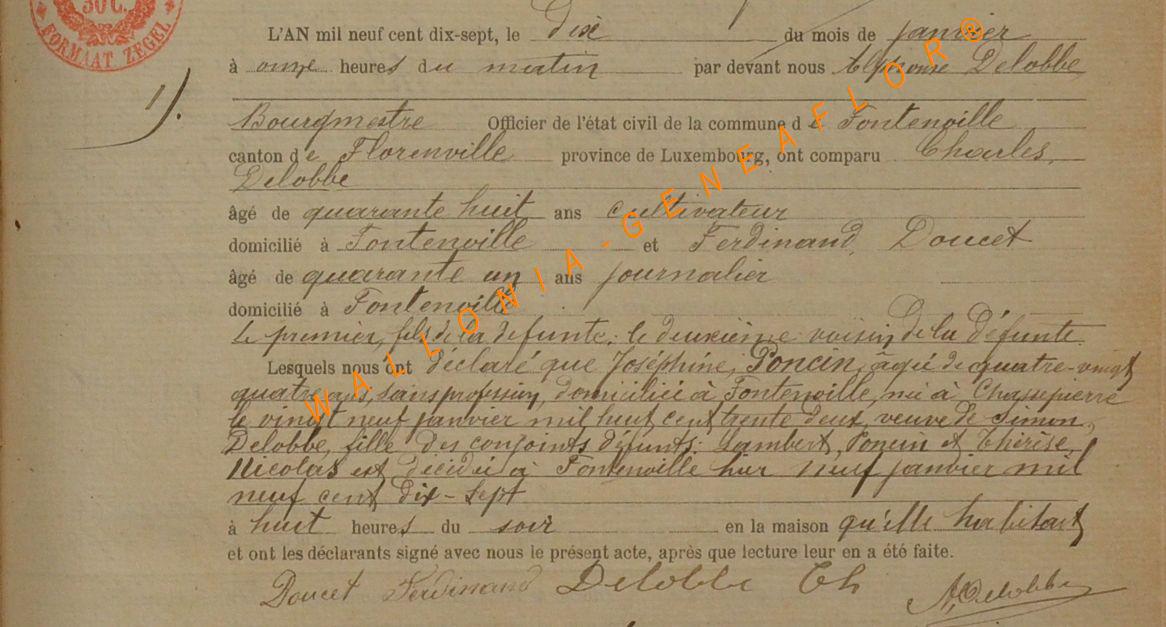 50 C.
FORMAAT ZEGEL
L'AN mil neuf cent dix-sept, le dix du mois de janvier
à onze heures du matin par devant nous Alphonse Delobbe
1).
Bourgmestre Officier de l'état civil de la commune de Fontenoille
canton de Florenville province de Luxembourg, ont comparu Charles
Delobbe
âgé de quarante huit ans cultivateur
domicilié à Fontenoille et Ferdinand Doucet
âgé de quarante un ans journalier
domicilié à Fontenoille
le premier, fils de la défunte, le deuxième voisin de la défunte
Lesquels nous ont déclaré que Joséphine, Poncin, âgée de quatre-vingt
quatre ans, sans profession, domiciliée à Fontenoille, née à Chassepierre
le vingt neuf janvier mil huit cent trente deux, veuve de Simon,
Delobbe, fille des conjoints défunts: Lambert, Poncin et Thérèse
Nicolas est décédée à Fontenoille hier neuf janvier mil
neuf cent dix-sept
à huit heures du soir en la maison qu'elle habitait
et ont les déclarants signé avec nous le présent acte, après que lecture leur en a été faite.
Doucet Ferdinand Delobbe Ch A, Delobbe
WALLONIA-GENEAFLOR®